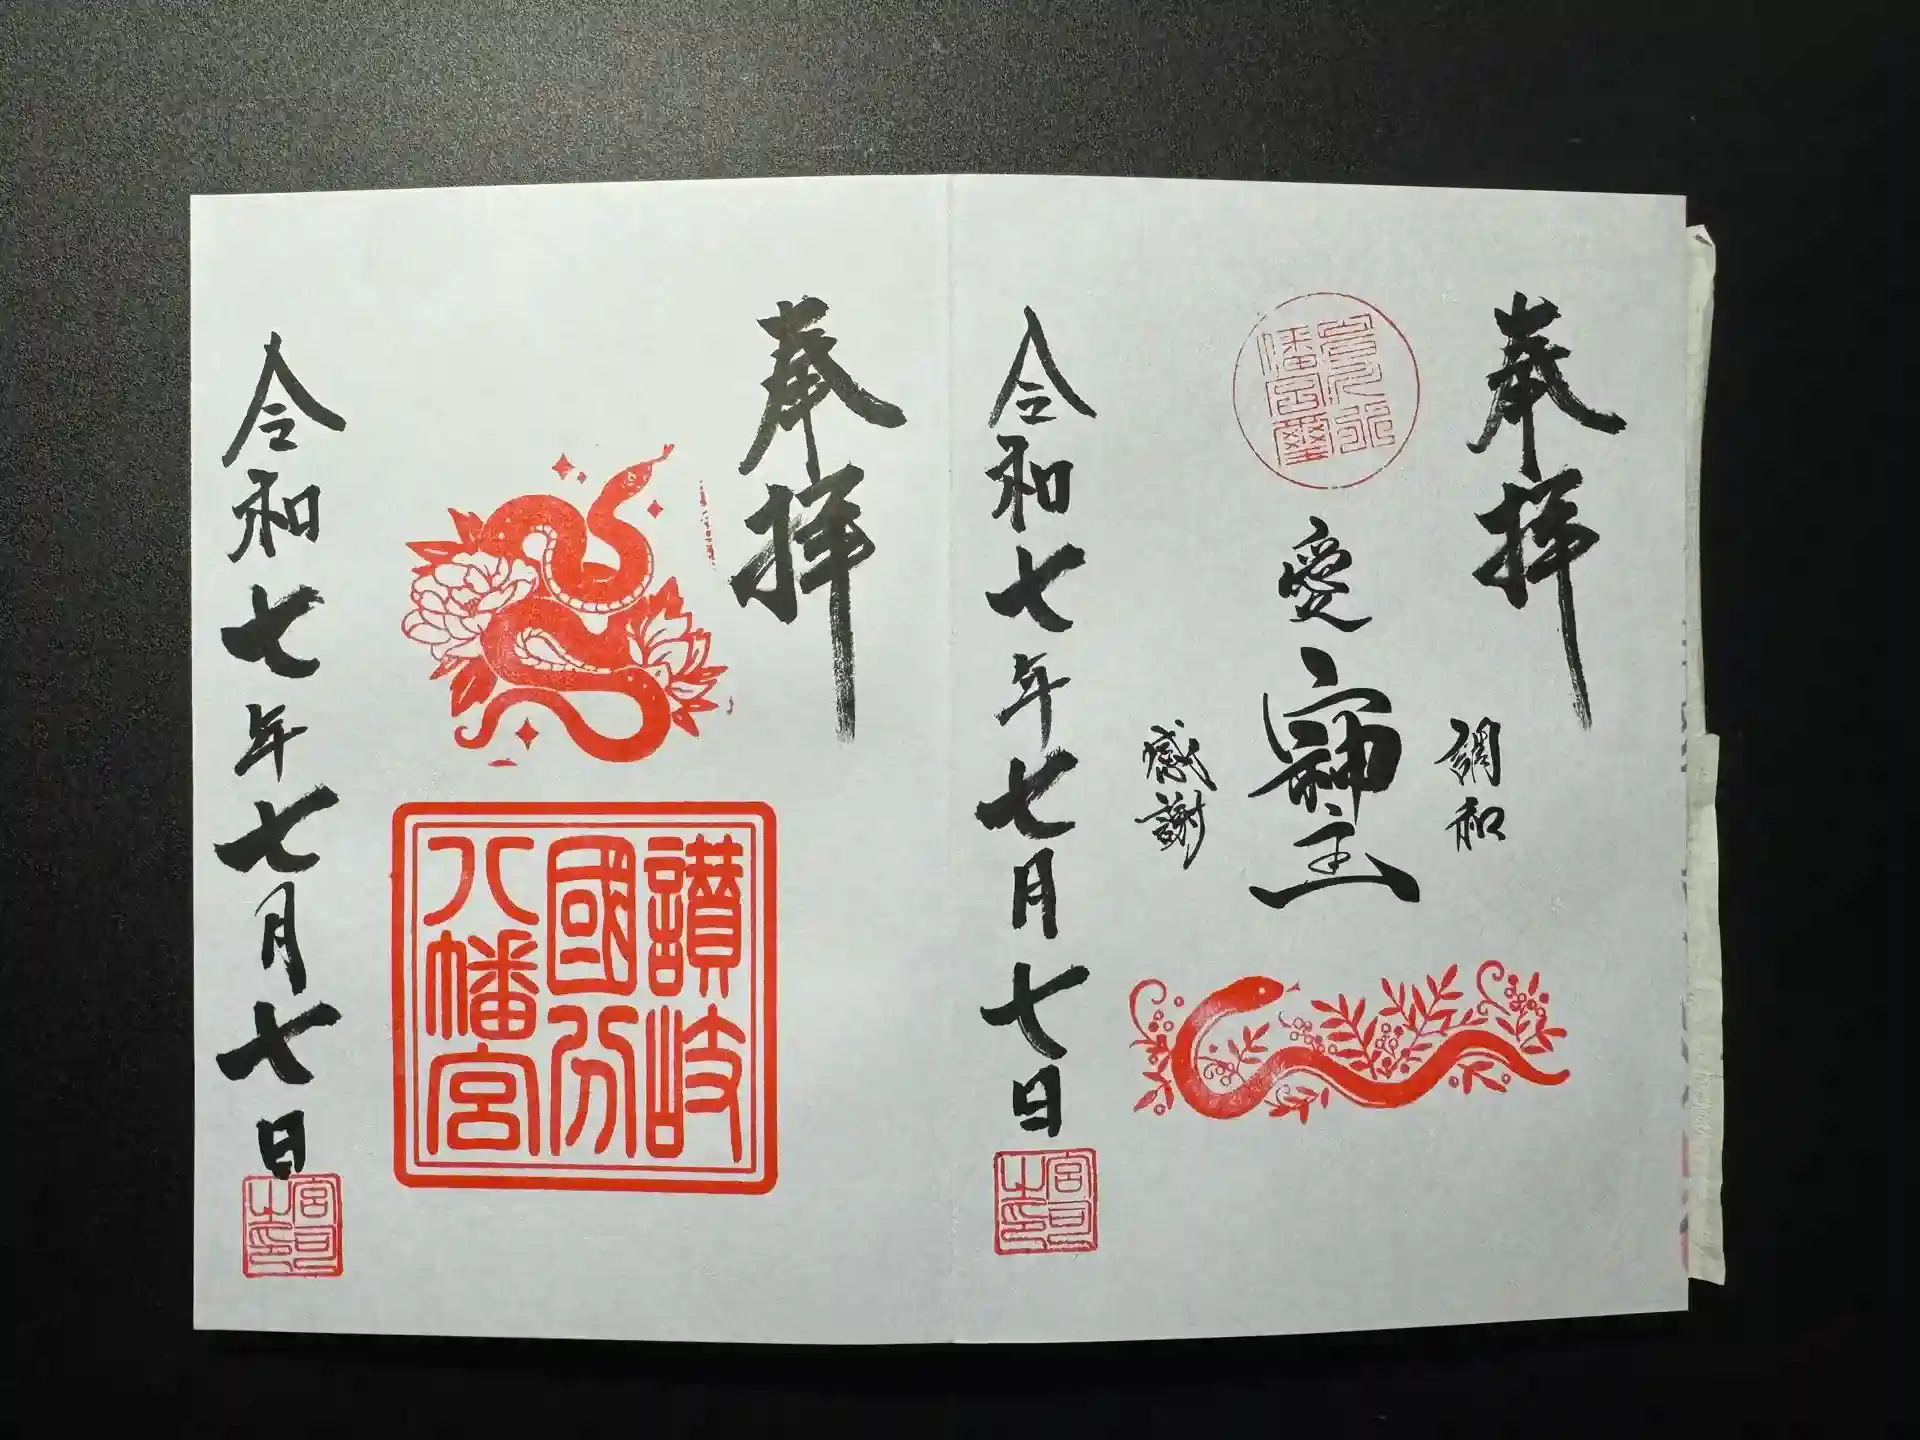 奉拝
調和
愛
感謝
令和七年七月七日
宮司之印
奉拝
讃岐
國分
八幡宮
令和七年七月七日
宮司之印